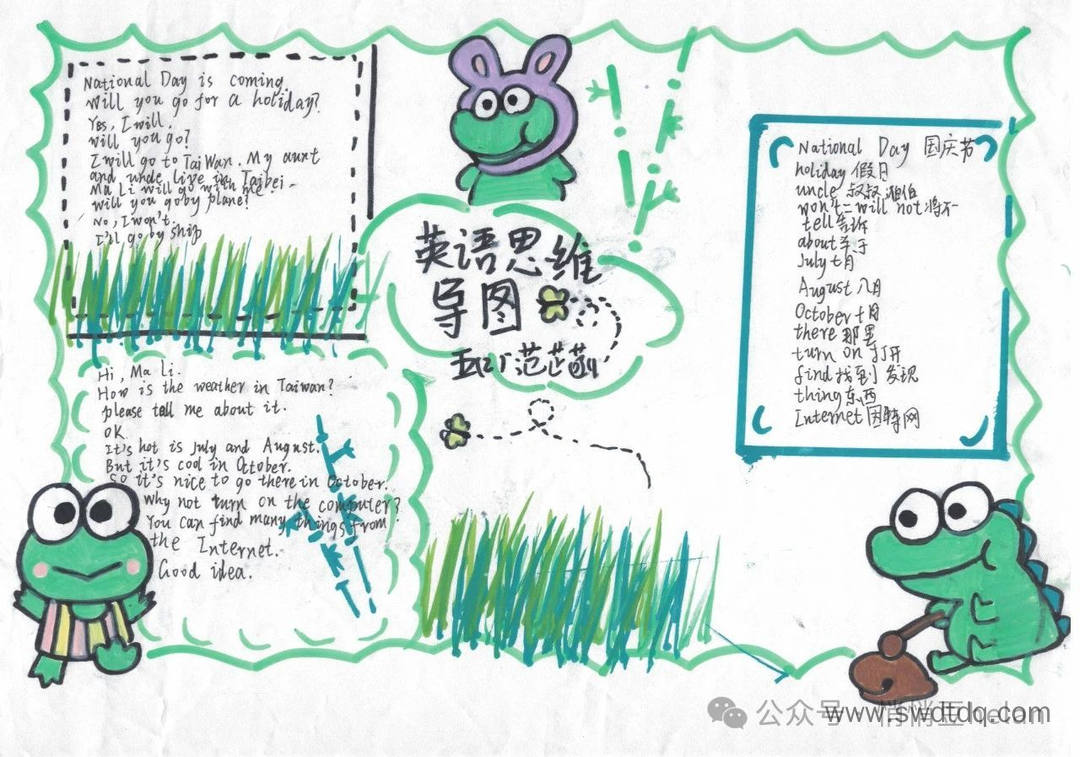 National Day is coming.
Will you go for a holiday?
Yes, I will.
will you go?
I will go to TaiWan. My aunt
and uncle live in Taibei.
Ma Li will go with me.
will you go by plane?
No, I won't.
I'll go by ship
英语思维
导图
National Day 国庆节
holiday 假日
uncle 叔叔,伯伯
won't = will not 将不
tell 告诉
about 关于
July 七月
August 八月
October 十月
there 那里
turn on 打开
find 找到 发现
thing 东西
Internet 因特网
Hi, Ma Li.
How is the weather in Taiwan?
please tell me about it.
OK.
It's hot is July and August.
But it's cool in October.
So it's nice to go there in October.
Why not turn on the computer?
You can find many things from
the Internet.
Good idea.
公众号
www.swdtdq.com